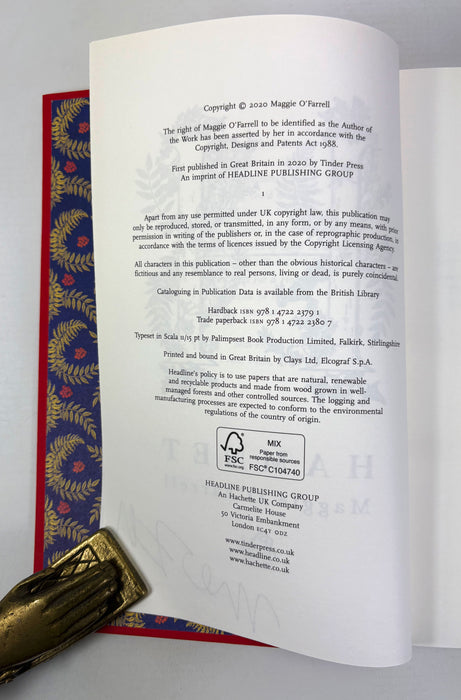 Copyright © 2020 Maggie O'Farrell
The right of Maggie O'Farrell to be identified as the Author of
the Work has been asserted by her in accordance with the
Copyright, Designs and Patents Act 1988.
First published in Great Britain in 2020 by Tinder Press
An imprint of HEADLINE PUBLISHING GROUP
1
Apart from any use permitted under UK copyright law, this publication may
only be reproduced, stored, or transmitted, in any form, or by any means, with prior
permission in writing of the publishers or, in the case of reprographic production, in
accordance with the terms of licences issued by the Copyright Licensing Agency.
All characters in this publication – other than the obvious historical characters – are
fictitious and any resemblance to real persons, living or dead, is purely coincidental.
Cataloguing in Publication Data is available from the British Library
Hardback ISBN 978 1 4722 2379 1
Trade paperback ISBN 978 1 4722 2380 7
Typeset in Scala 11/15 pt by Palimpsest Book Production Limited, Falkirk, Stirlingshire
Printed and bound in Great Britain by Clays Ltd, Elcograf S.p.A.
Headline's policy is to use papers that are natural, renewable
and recyclable products and made from wood grown in well-
managed forests and other controlled sources. The logging and
manufacturing processes are expected to conform to the environmental
regulations of the country of origin.
FSC
www.fsc.org
MIX
Paper from
responsible sources
FSC® C104740
HEADLINE PUBLISHING GROUP
An Hachette UK Company
Carmelite House
50 Victoria Embankment
London EC4Y 0DZ
www.tinderpress.co.uk
www.headline.co.uk
www.hachette.co.uk